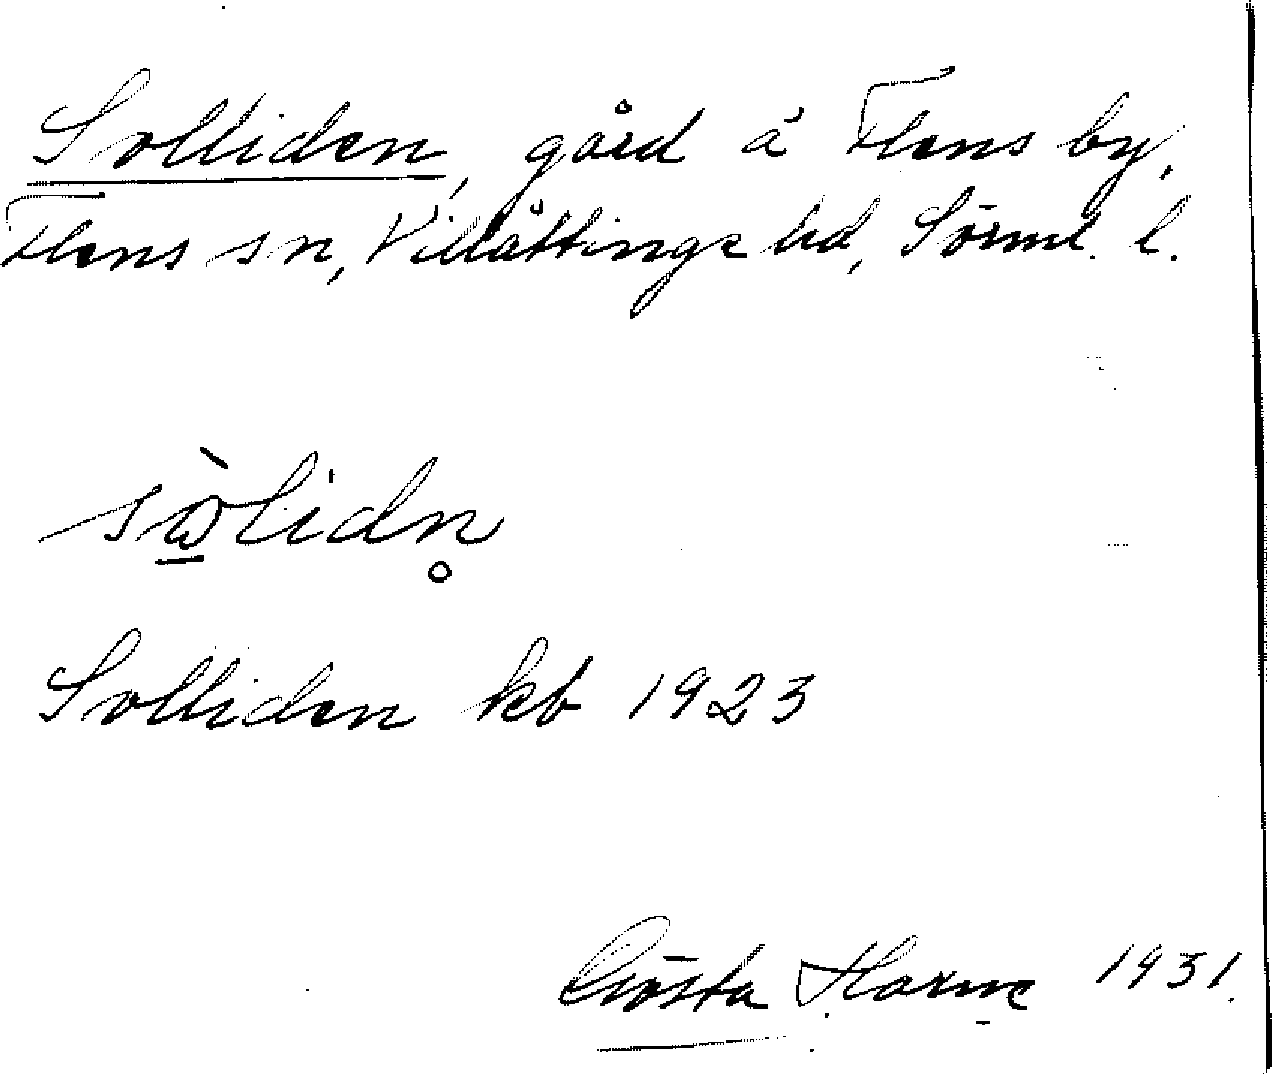 Solliden, gård å Flens by,
Flens sn, Villåttinge hd, Sörml. l.
sὼ̱lidn̥
Solliden kb 1923
Gösta Harne 1931.